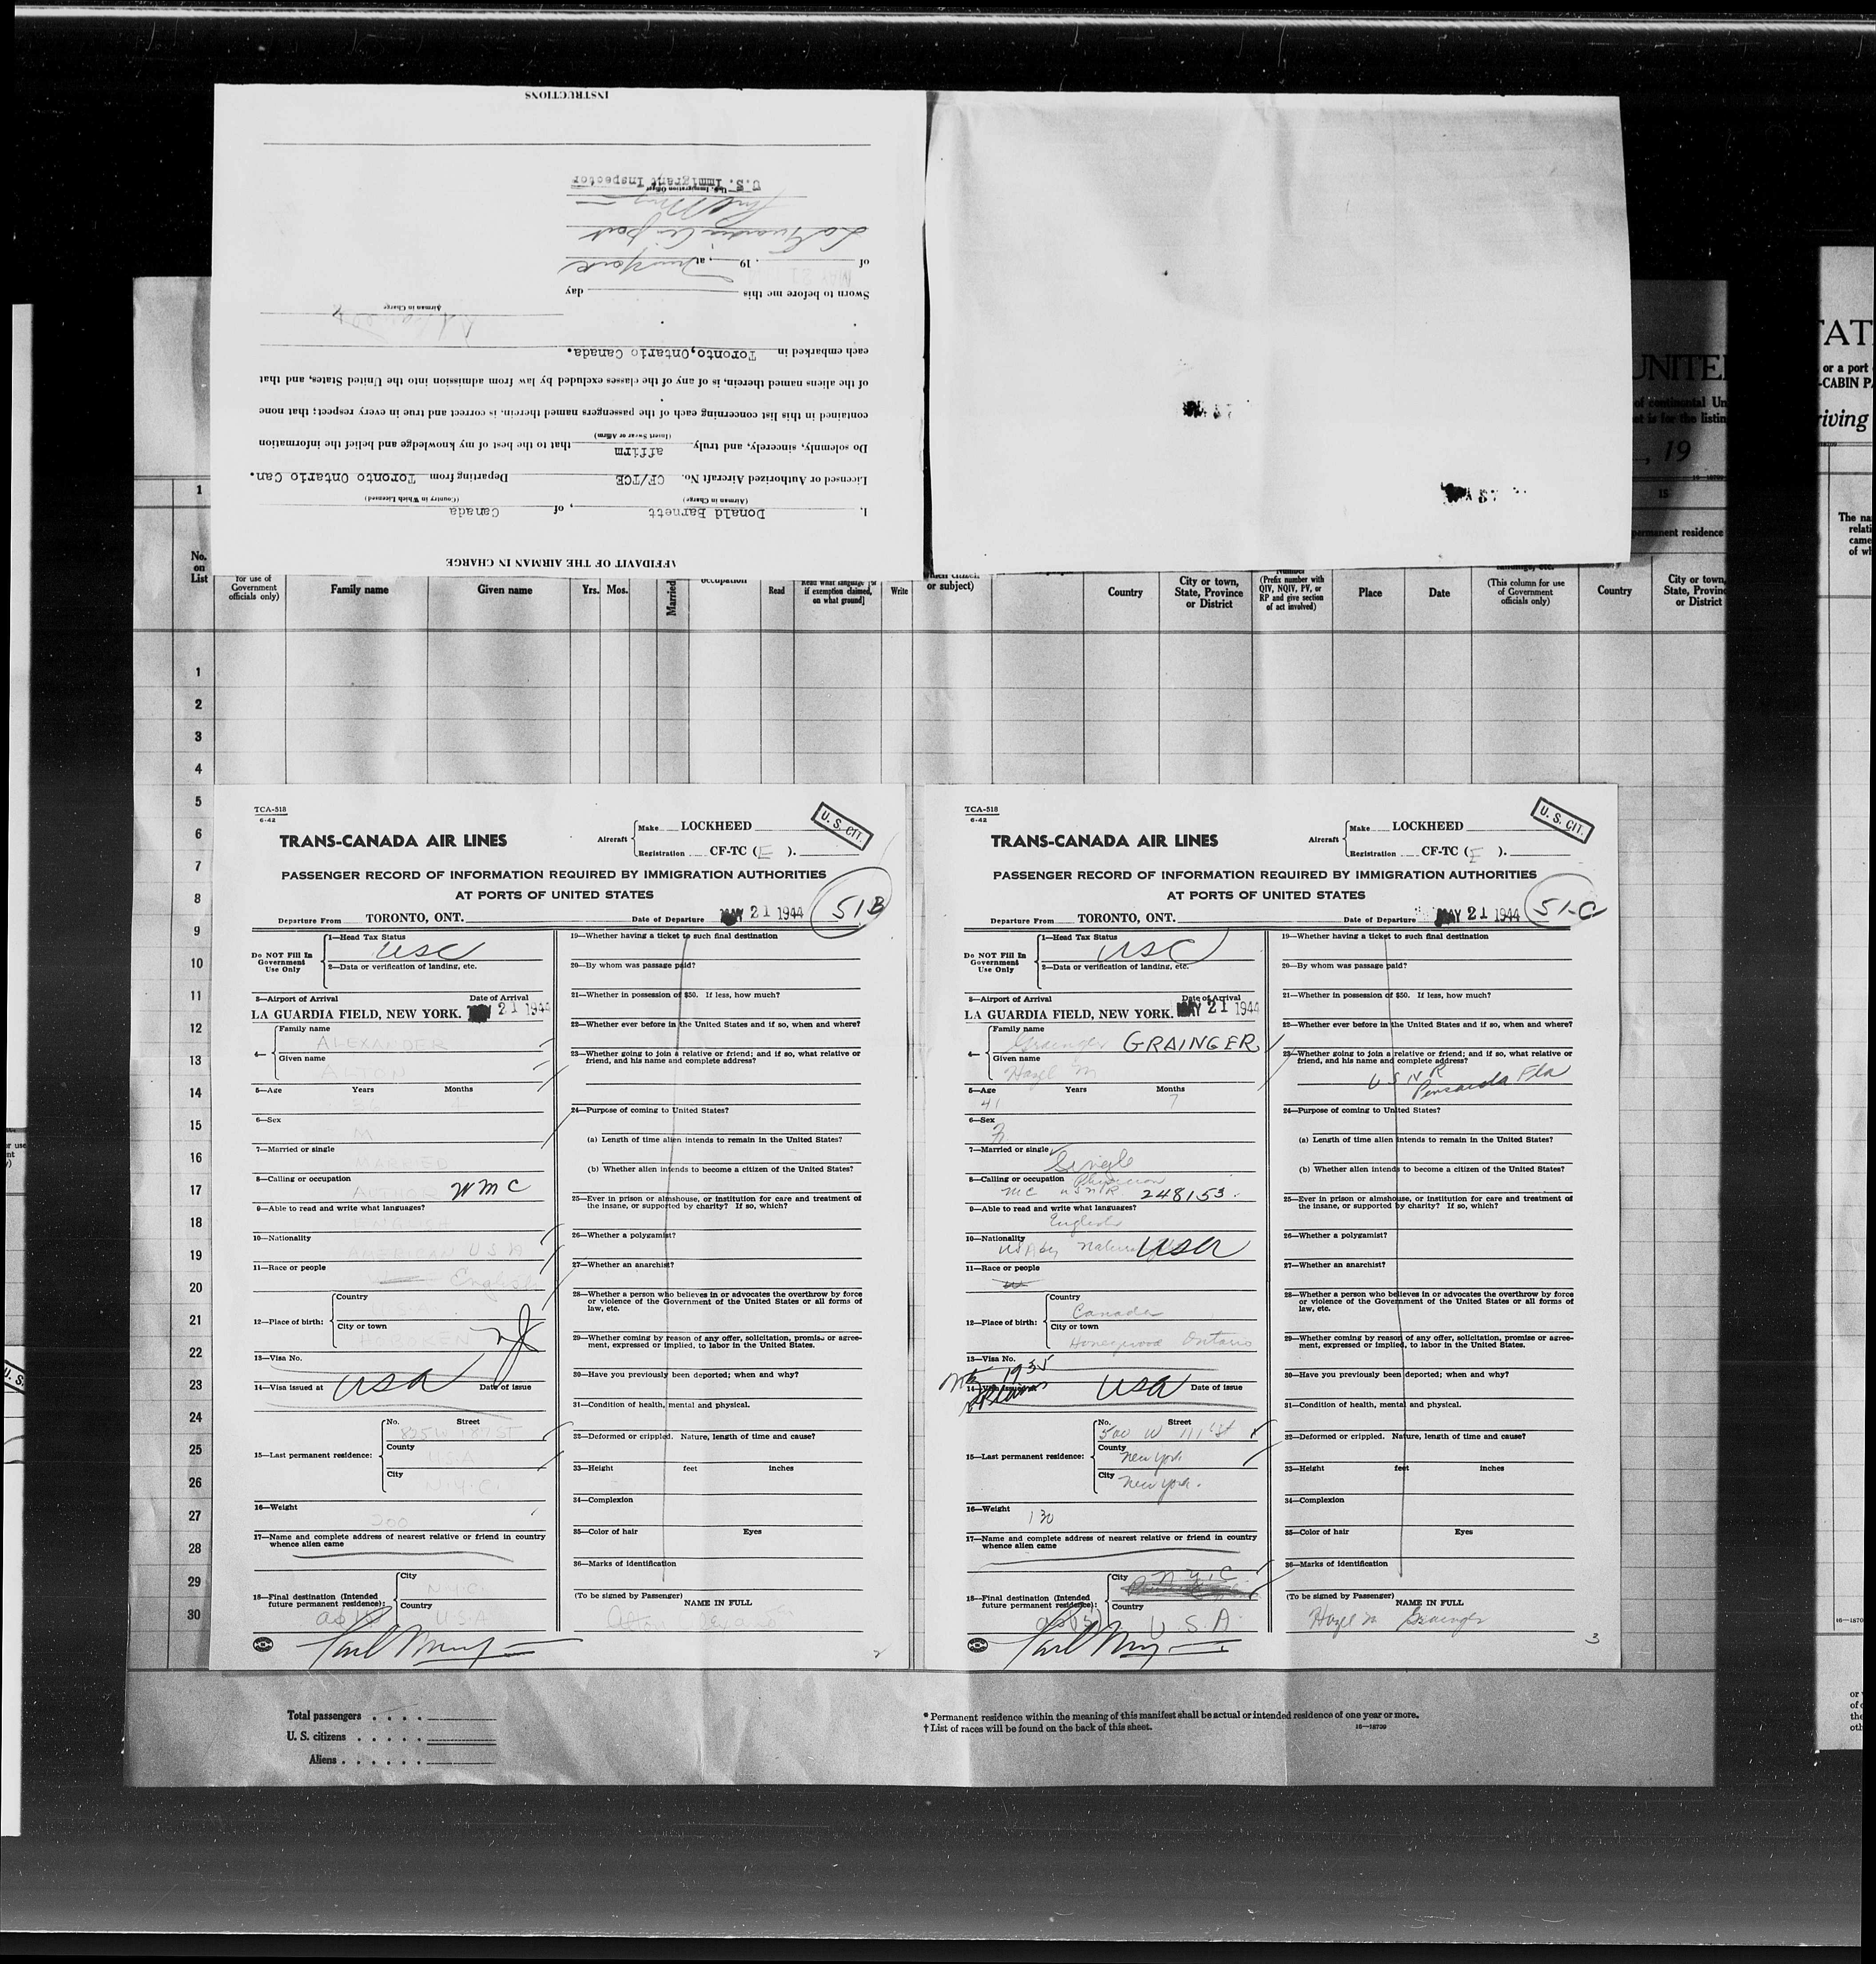 INSTRUCTIONS
U.S. Immigrant Inspector
U.S. Immigration Officer
La Guardia Air port
of , 19 , at New York
Sworn to before me this day
Airman in Charge
each embarked in Toronto, Ontario Canada.
of the aliens named therein, is of any of the classes excluded by law from admission into the United States, and that
contained in this list concerning each of the passengers named therein, is correct and true in every respect; that none
Do solemnly, sincerely, and truly affirm that to the best of my knowledge and belief the information
(Insert Swear or Affirm)
Licensed or Authorized Aircraft No. CF/TCE Departing from Toronto Ontario Can.
(Airman in Charge) (Country in Which Licensed)
I, Donald Barnett, of Canada
AFFIDAVIT OF THE AIRMAN IN CHARGE
UNITE
of continental Un
et is for the listin
, 19
16—18709
15
permanent residence
TAT
or a port
-CABIN P
riving
18709
The na
relati
came
of wh
1
No. on List
for use of Government officials only)
Family name
Given name
Yrs.
Mos.
Married
occupation
Read
Read what language [or if exemption claimed, on what ground]
Write
or subject)
Country
City or town, State, Province or District
Number
(Prefix number with QIV, NQIV, PV, or RP and give section of act involved)
Place
Date
(This column for use of Government officials only)
Country
City or town, State, Provin or District
1
2
3
4
5
6
7
8
9
10
11
12
13
14
15
16
17
18
19
20
21
22
23
24
25
26
27
28
29
30
TCA-518
6-42
TRANS-CANADA AIR LINES
Aircraft
Make LOCKHEED
Registration CF-TC ( E ).
U. S. CIT.
PASSENGER RECORD OF INFORMATION REQUIRED BY IMMIGRATION AUTHORITIES
AT PORTS OF UNITED STATES
51B
Departure From TORONTO, ONT. Date of Departure MAY 21 1944
Do NOT Fill In Government Use Only
1—Head Tax Status
USC
2—Data or verification of landing, etc.
3—Airport of Arrival Date of Arrival
LA GUARDIA FIELD, NEW YORK. MAY 21 1944
4—
Family name
ALEXANDER
Given name
ALTON
5—Age Years Months
6—Sex
M
7—Married or single
MARRIED
8—Calling or occupation
AUTHOR WMC
9—Able to read and write what languages?
ENGLISH
10—Nationality
AMERICAN USA
11—Race or people
English
12—Place of birth:
Country
City or town
NJ
13—Visa No.
14—Visa issued at USA Date of issue
15—Last permanent residence:
No. Street
825 W 187 ST
County
USA
City
N.Y.C.
16—Weight
200
17—Name and complete address of nearest relative or friend in country
whence alien came
18—Final destination (Intended
future permanent residence):
City
N.Y.C.
Country
USA
19—Whether having a ticket to such final destination
20—By whom was passage paid?
21—Whether in possession of $50. If less, how much?
22—Whether ever before in the United States and if so, when and where?
23—Whether going to join a relative or friend; and if so, what relative or
friend, and his name and complete address?
24—Purpose of coming to United States?
(a) Length of time alien intends to remain in the United States?
(b) Whether alien intends to become a citizen of the United States?
25—Ever in prison or almshouse, or institution for care and treatment of
the insane, or supported by charity? If so, which?
26—Whether a polygamist?
27—Whether an anarchist?
28—Whether a person who believes in or advocates the overthrow by force
or violence of the Government of the United States or all forms of
law, etc.
29—Whether coming by reason of any offer, solicitation, promise or agree-
ment, expressed or implied, to labor in the United States.
30—Have you previously been deported; when and why?
31—Condition of health, mental and physical.
32—Deformed or crippled. Nature, length of time and cause?
33—Height feet inches
34—Complexion
35—Color of hair Eyes
36—Marks of identification
(To be signed by Passenger)
NAME IN FULL
2
TCA-518
6-42
TRANS-CANADA AIR LINES
Aircraft
Make LOCKHEED
Registration CF-TC ( E ).
U. S. CIT.
PASSENGER RECORD OF INFORMATION REQUIRED BY IMMIGRATION AUTHORITIES
AT PORTS OF UNITED STATES
51-C
Departure From TORONTO, ONT. Date of Departure MAY 21 1944
Do NOT Fill In Government Use Only
1—Head Tax Status
USC
2—Data or verification of landing, etc.
3—Airport of Arrival Date of Arrival
LA GUARDIA FIELD, NEW YORK. MAY 21 1944
4—
Family name
Grainger GRAINGER
Given name
Hazel M
5—Age Years Months
41 7
6—Sex
F
7—Married or single
Single
8—Calling or occupation Physician
MC USNR 248153.
9—Able to read and write what languages?
English
10—Nationality
USA by USA
11—Race or people
12—Place of birth:
Country
Canada
City or town
Honeywood Ontario
13—Visa No.
1935
14—Visa issued at USA Date of issue
15—Last permanent residence:
No. Street
500 W 111 St
County
New York
City
New York.
16—Weight
130
17—Name and complete address of nearest relative or friend in country
whence alien came
18—Final destination (Intended
future permanent residence):
City
N.Y.C
Country
U.S.A.
19—Whether having a ticket to such final destination
20—By whom was passage paid?
21—Whether in possession of $50. If less, how much?
22—Whether ever before in the United States and if so, when and where?
23—Whether going to join a relative or friend; and if so, what relative or
friend, and his name and complete address?
USNR
Pensacola Fla
24—Purpose of coming to United States?
(a) Length of time alien intends to remain in the United States?
(b) Whether alien intends to become a citizen of the United States?
25—Ever in prison or almshouse, or institution for care and treatment of
the insane, or supported by charity? If so, which?
26—Whether a polygamist?
27—Whether an anarchist?
28—Whether a person who believes in or advocates the overthrow by force
or violence of the Government of the United States or all forms of
law, etc.
29—Whether coming by reason of any offer, solicitation, promise or agree-
ment, expressed or implied, to labor in the United States.
30—Have you previously been deported; when and why?
31—Condition of health, mental and physical.
32—Deformed or crippled. Nature, length of time and cause?
33—Height feet inches
34—Complexion
35—Color of hair Eyes
36—Marks of identification
(To be signed by Passenger)
NAME IN FULL
Hazel M Grainger
3
Total passengers . . . .
U. S. citizens . . . . .
Aliens . . . . . .
* Permanent residence within the meaning of this manifest shall be actual or intended residence of one year or more.
† List of races will be found on the back of this sheet.
16—18709